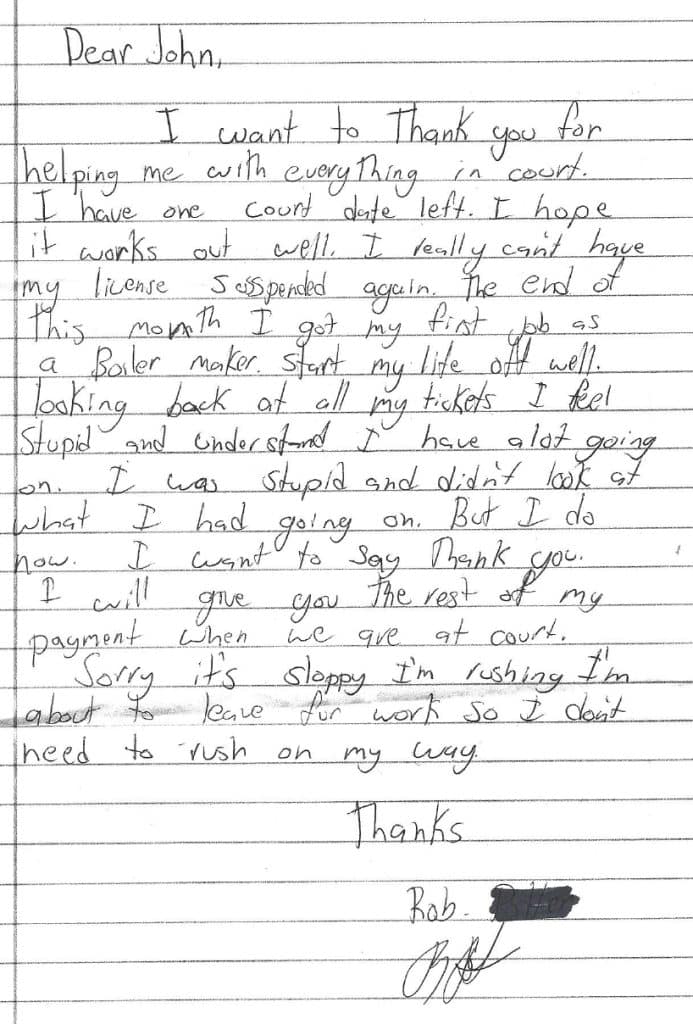 Dear John,
I want to Thank you for
helping me with everything in court.
I have one court date left. I hope
it works out well. I really can't have
my license suspended again. The end of
This month I got my first job as
a Boiler maker. start my life off well.
looking back at all my tickets I feel
Stupid and understand I have alot going
on. I was stupid and didn't look at
what I had going on. But I do
now. I want to say Thank you.
I will give you The rest of my
payment when we are at court.
Sorry it's sloppy I'm rushing I'm
about to leave for work so I don't
need to rush on my way.
Thanks
Rob.